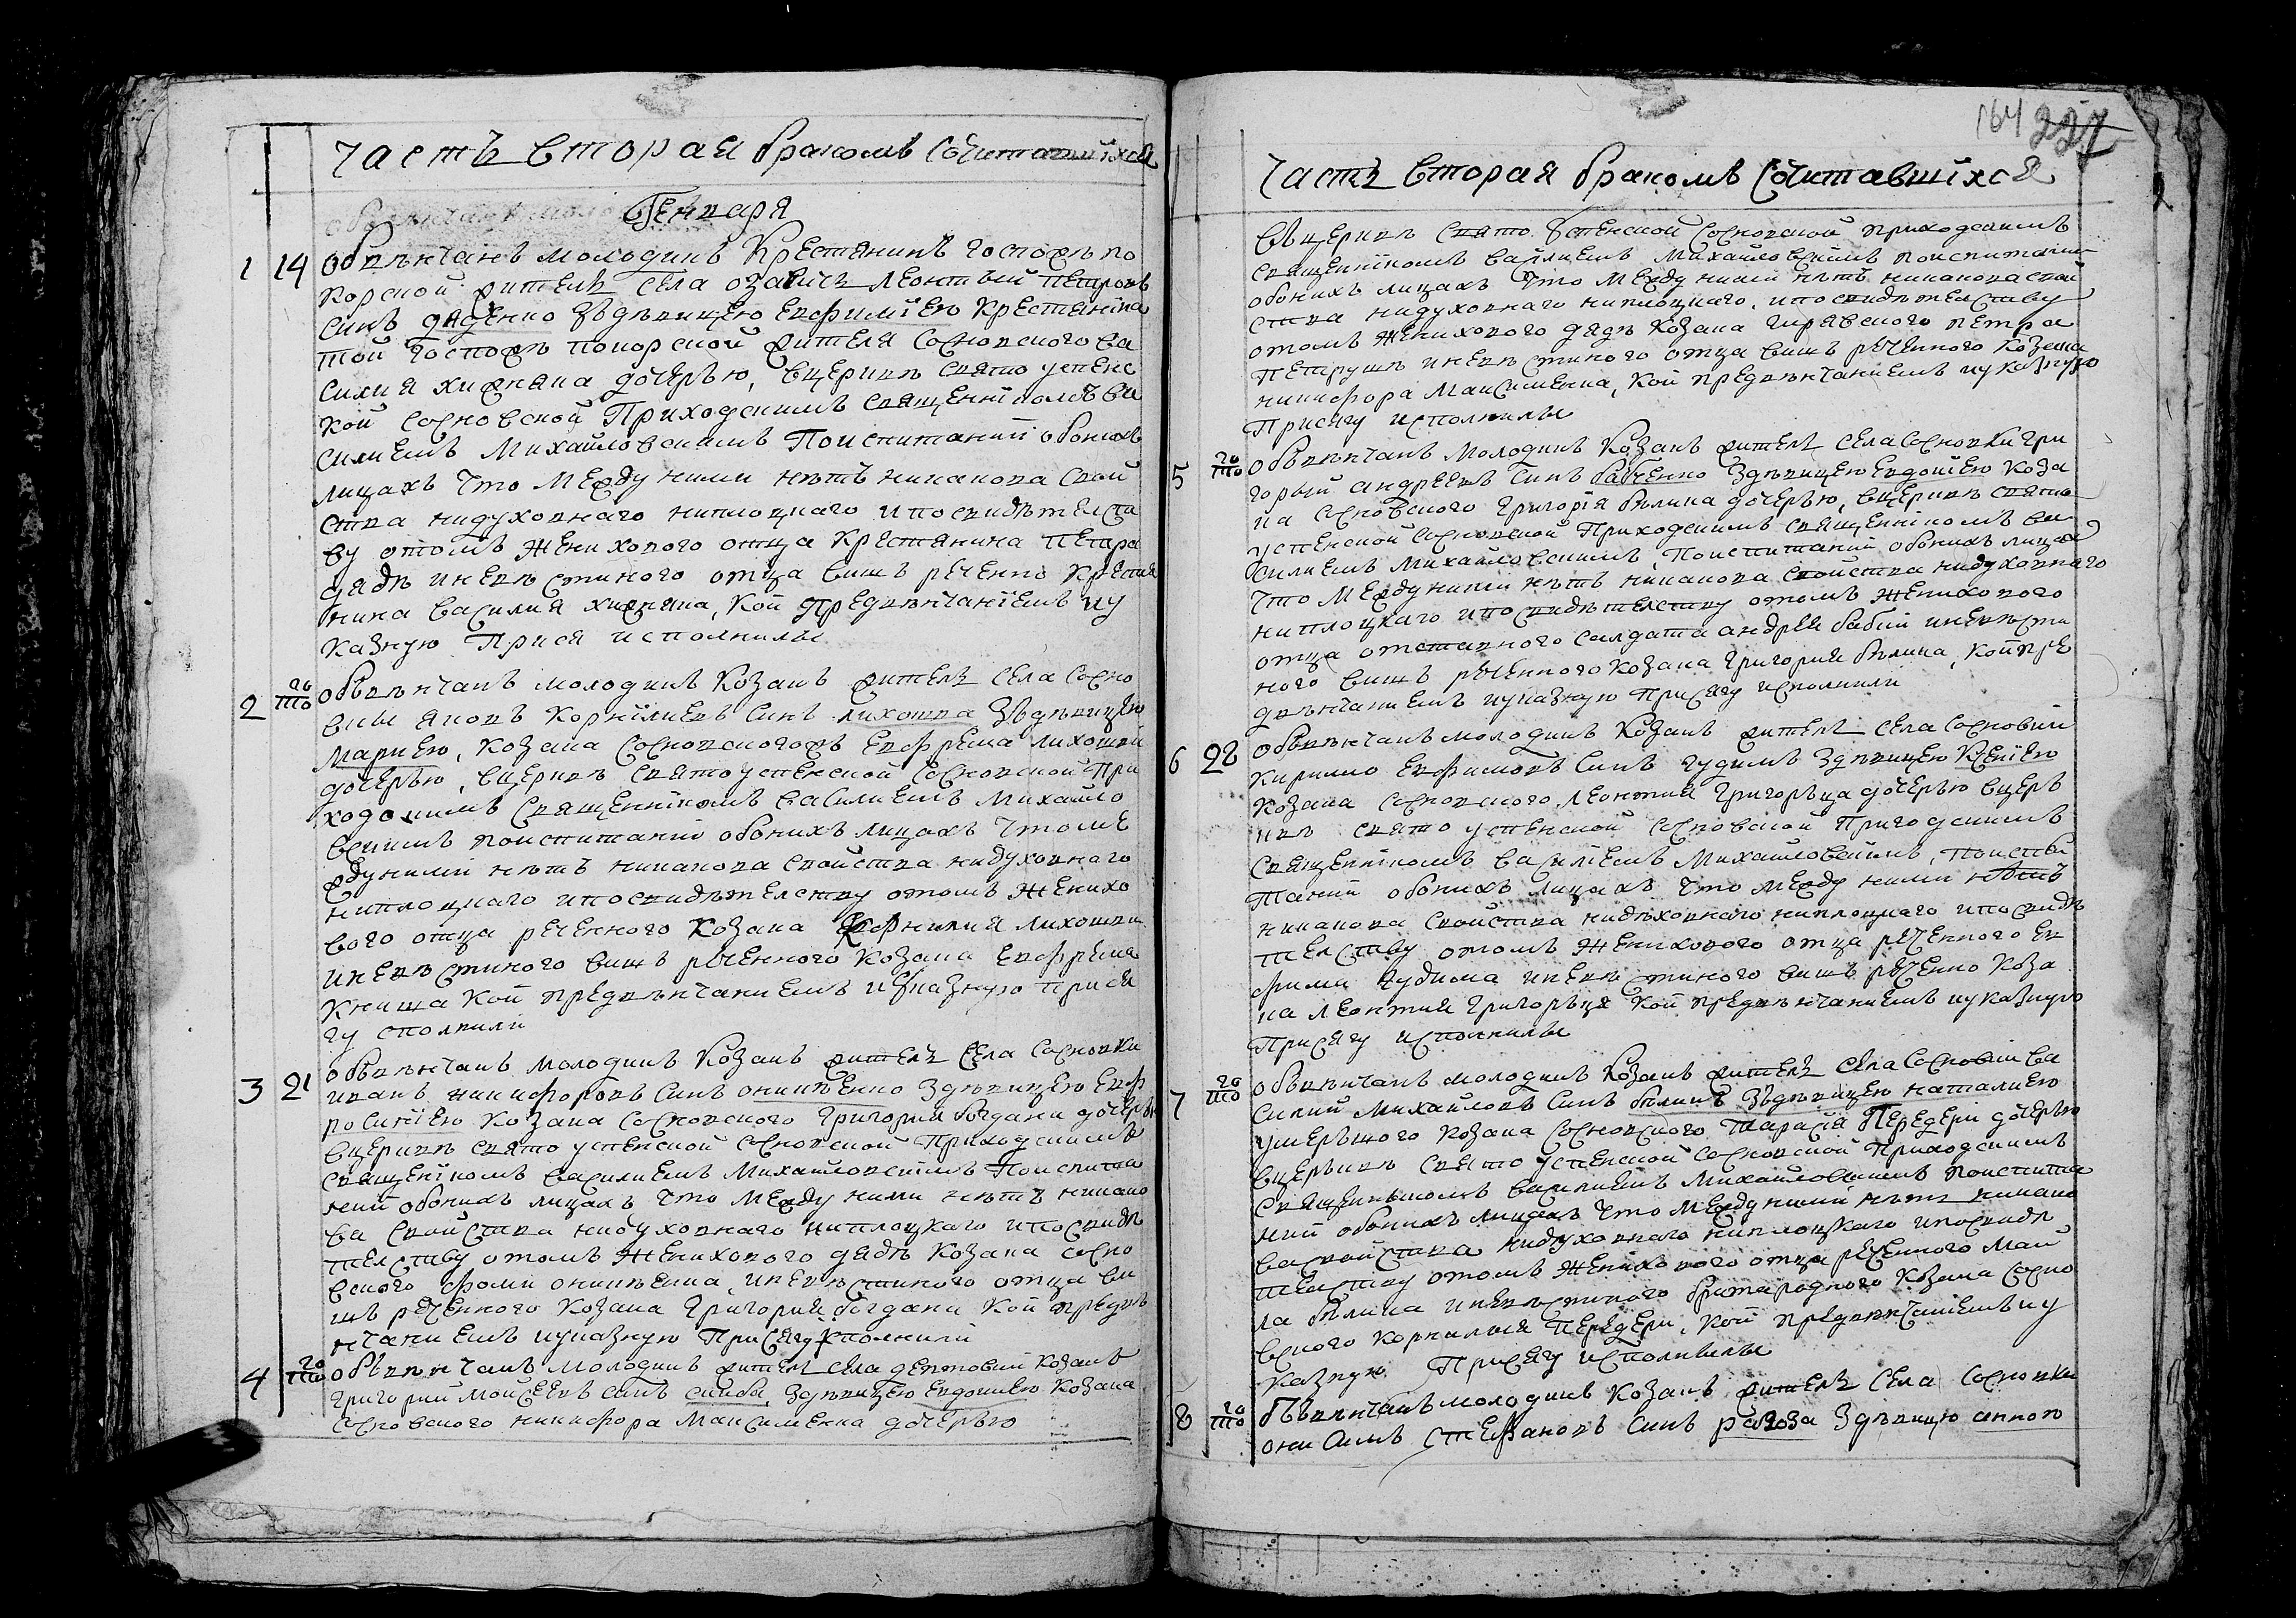 часть вторая бракомъ сочитавшихся
Генваря
1 14 обвѣнчанъ молодикъ Крестянинъ госпожѣ по
корской житель села озаричъ леонтий петровъ
синъ дяденко здѣвицею евфимиею крестянина
той госпожѣ покорской жителя сосновского ва
силия хижняка дочерью, вцеркве свято успенс
кой сосновской приходскимъ священникомъ ва
силиемъ михайловскимъ поиспитаний обоихъ
лицахъ что между ними нѣтъ никакова свой
ства нидуховнаго ниплоцкаго ипосвидѣтелст
ву отомъ женихового отца крестянина петра
дядѣ иневѣстиного отца вишъ реченно крестя
нина василия хижняка, кой предвѣнчаниемъ иу
казную прися исполнилы
2 то го обвѣнчанъ молодикъ козакъ житель села сосно
вки яковъ корнилиевъ синъ лихошва здѣвицею
мариею, козака сосновского евфрема лихошви
дочерью, вцеркве святоуспенской сосновской при
ходскимъ священникомъ василиемъ михайло
вскимъ поиспитаний обоихъ лицахъ что ме
жду ними нѣтъ никакова свойства нидуховнаго
ниплоцкаго ипосвидѣтелству отомъ женихо
вого отца реченного козака корнилия лихошви
иневѣстиного вишъ реченного козака евфрема
книша кой предвѣнчаниемъ иуказную прися
гу сполнили
3 21 обвѣнчанъ молодикъ козакъ житель села сосновки
иванъ никифоровъ синъ оникѣенко здѣвицею евф
росиниею козака сосновского григорий богдани дочерью
вцеркве свято успенской сосновской приходскимъ
священикомъ василиемъ михайловскимъ поиспита
ний обоихъ лицахъ что между ними нѣтъ никако
ва свойства нидуховнаго ниплоцкаго ипосвидѣ
телству отомъ женихового дядѣ козака сосно
вского фоми оникѣенка, иневѣстиного отца ви
шъ реченного козака григорий богдани кой предвѣ
нчаниемъ иуказную присягу исполнили
4 то го обвѣнчанъ молодикъ житель села дептовки козакъ
григорий мойсеевъ синъ скиба здѣвицею евдокиею козака
сосновского никифора максименка дочерью
164 227
часть вторая бракомъ сочитавшихся
вцеркве свято успенской сосновской приходскимъ
священникомъ василиемъ михайловскимъ поиспитаний
обоихъ лицахъ что между ними нѣтъ никакова свой
ства нидуховнаго ниплоцкаго, ипосвидѣтелству
отомъ женихового дядѣ козака гирявского петра
петрушѣ иневѣстиного отца вишъ реченного козака
никифора максименка, кой предвѣнчаниемъ иуказную
присягу исполнилы
5 то го обвѣнчанъ молодикъ козакъ житель села сосновки гри
горый андреевъ синъ бабченко здѣвицею евдокиею коза
ка сосновского григория бѣлика дочерью, вцеркве свято
успенской сосновской приходскимъ священникомъ ва
силиемъ михайловскимъ, поиспитаний обоихъ лицах
что между ними нѣтъ никакова свойства нидуховнаго
ниплоцкаго ипосвидѣтелству отомъ женихового
отца отставного салдата андрея бабки иневѣсти
ного вишъ реченного козака григория бѣлика, кой пре
двѣнчаниемъ иуказную присягу исполнили
6 28 обвѣнчанъ молодикъ козакъ житель села сосновки
кирило евфимовъ синъ чудикъ здѣвицею ксениею
козака сосновского леонтия григорьца дочерью вцерк
ве свято успенской сосновской приходскимъ
священникомъ василиемъ михайловскимъ, поиспи
таний обоихъ лицахъ что между ними нѣтъ
никакова свойства нидѣховнаго ниплоцкаго ипосвидѣ
телству отомъ женихового отца реченного ев
фима чудика иневѣстиного вишъ реченно коза
ка леонтия григорьця кой предвѣнчаниемъ иуказную
присягу исполнилы
7 то го обвѣнчанъ молодикъ козакъ житель села сосновки ва
силий михайловъ синъ бѣликъ здѣвицею наталиею
умершого козака сосновского тарасия передери дочерью
вцеркве свято успенской сосновской приходскимъ
священикомъ василиемъ михайловскимъ поиспита
ний обоихъ лицахъ что между ними нѣтъ никако
ва свойства нидуховнаго ниплоцкаго ипосвидѣ
телству отомъ женихового отца реченного михай
ла бѣлика иневѣстиного братародного козака сосно
вского корнилия передери, кой предвѣнчаниемъ иу
казную присягу исполнилы
8 то го бвѣнчанъ молодикъ козакъ житель села сосновки
онисимъ стефановъ синъ рабоза здѣвицю анною